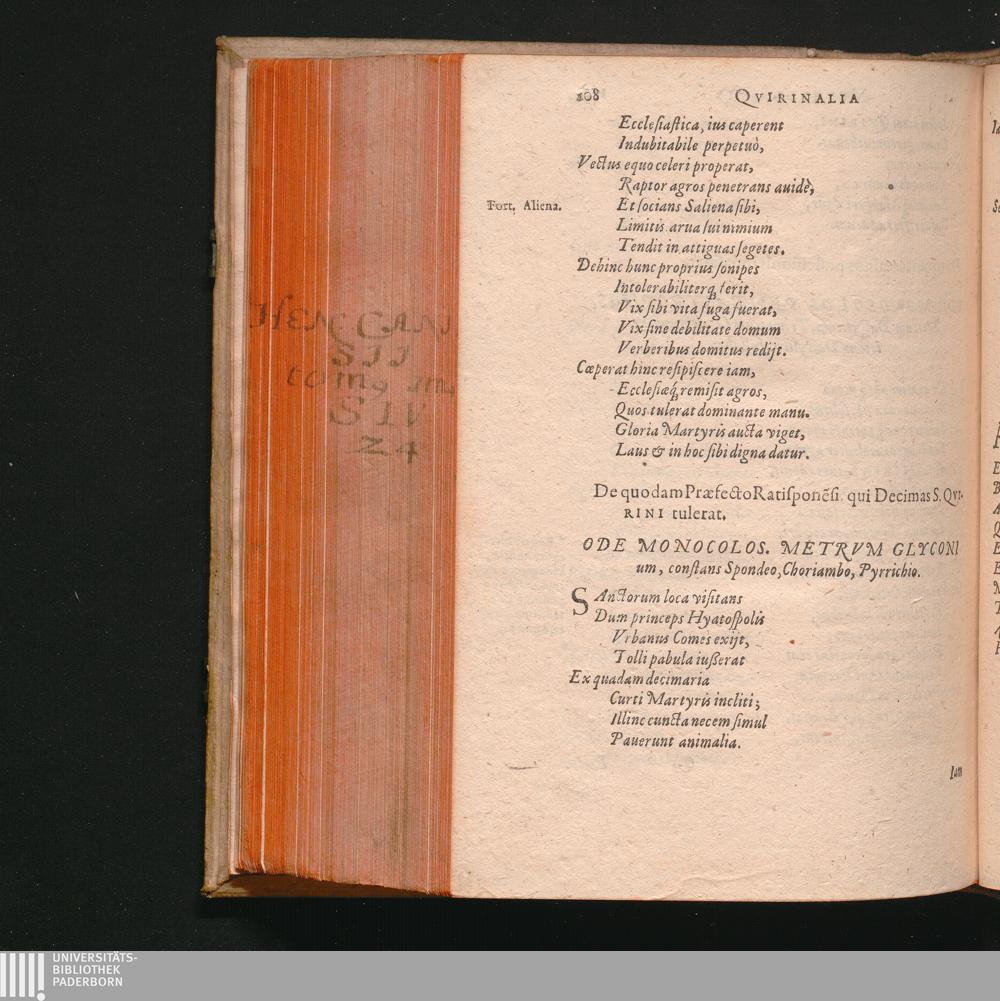 208 QVIRINALIA
Ecclesiastica, ius caperent
Indubitabile perpetuò,
Vectus equo celeri properat,
Raptor agros penetrans auidè,
Fort. Aliena.
Et socians Saliena sibi,
Limitis arua sui nimium
Tendit in attiguas segetes.
Dehinc hunc proprius sonipes
Intolerabiliterq́; terit,
Vix sibi vita fuga fuerat,
Vix sine debilitate domum
Verberibus domitus redijt.
Cœperat hinc resipiscere iam,
Ecclesiæq́; remisit agros,
Quos tulerat dominante manu.
Gloria Martyris aucta viget,
Laus & in hoc sibi digna datur.
De quodam Præfecto Ratisponẽsi, qui Decimas S. QVI-
RINI tulerat.
ODE MONOCOLOS. METRVM GLYCONI
um, constans Spondeo, Choriambo, Pyrrichio.
SAnctorum loca visitans
Dum princeps Hyatospolis
Vrbanus Comes exijt,
Tolli pabula iußerat
Ex quadam decimaria
Curti Martyris incliti;
Illinc cuncta necem simul
Pauerunt animalia.
Iam
HEN CANI
SII
tom,
SIV
24
UNIVERSITÄTS-
BIBLIOTHEK
PADERBORN